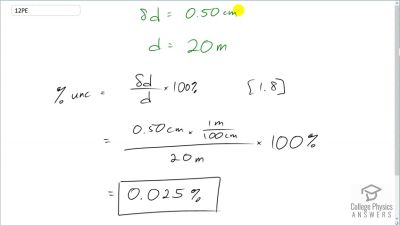 12PE
δd = 0.50 cm
d = 20 m
% unc = δd/d × 100% [1.8]
= (0.50 cm × 1m/100cm)/20m × 100%
= 0.025 %
College Physics
ANSWERS